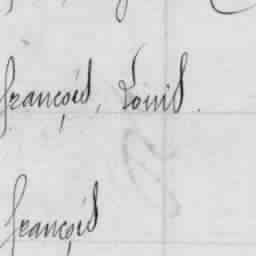 françois, Louis.
françois